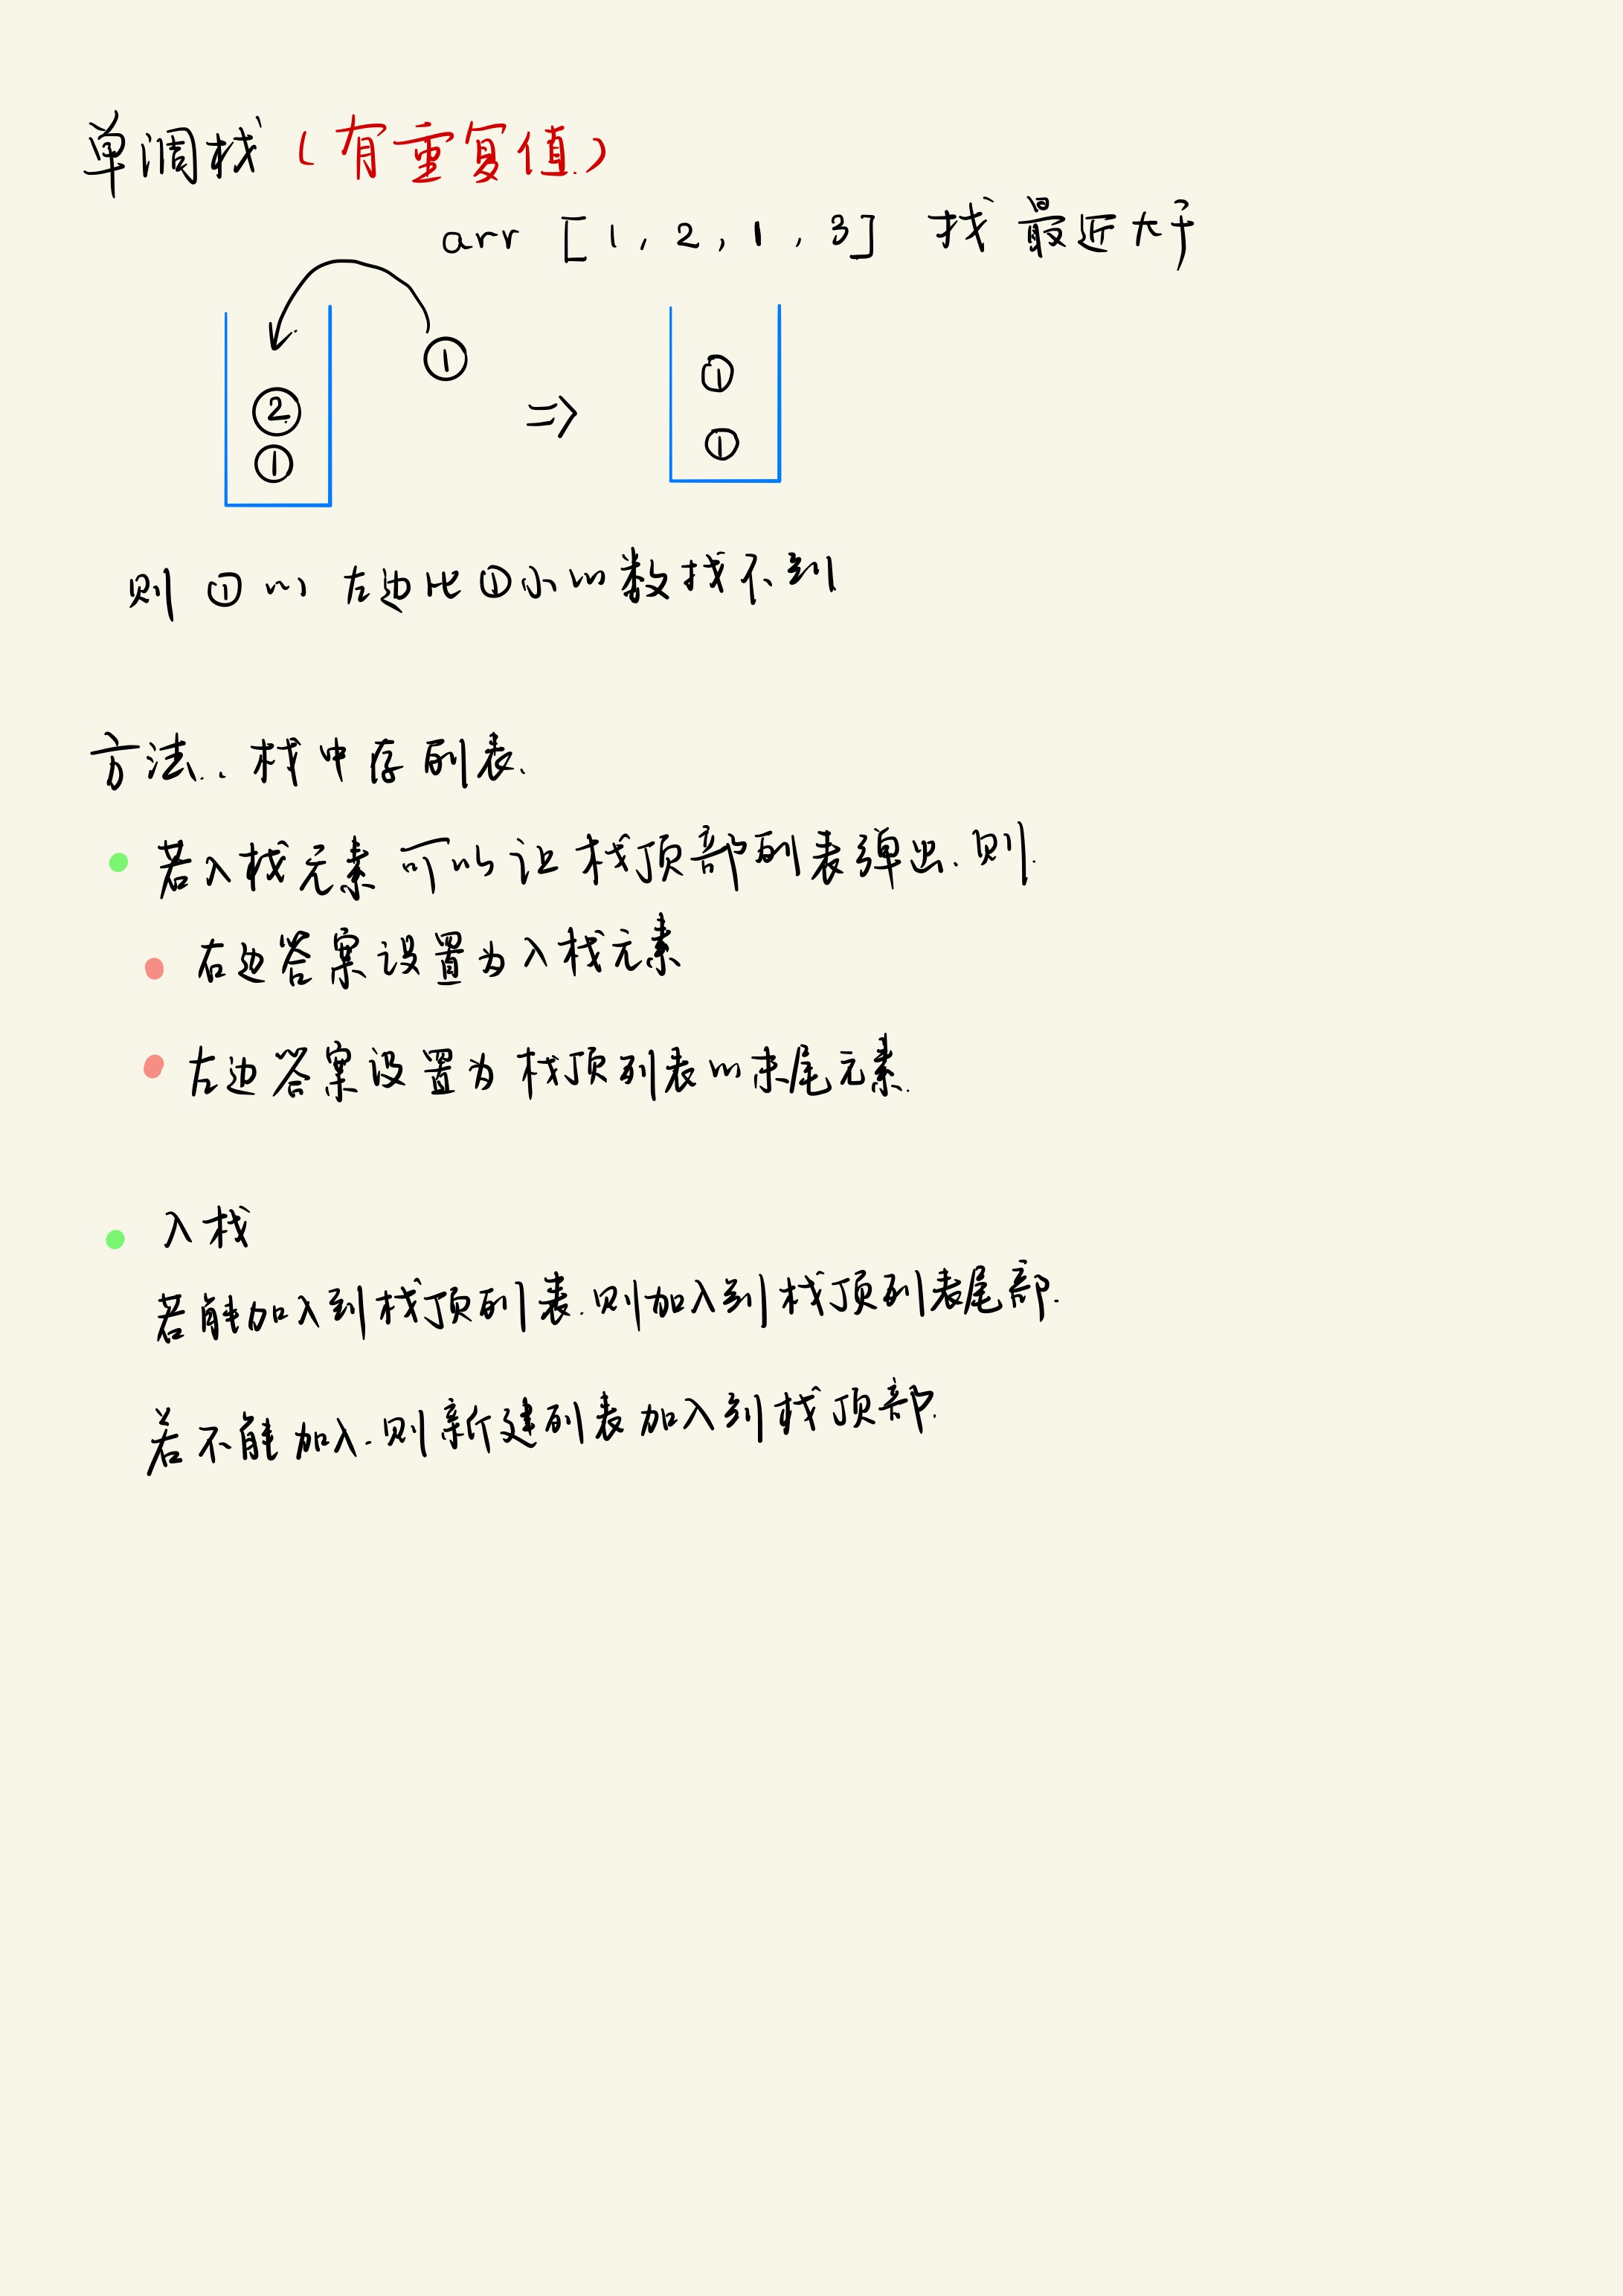 单调栈（有重复值）
arr [1, 2, 1, 3] 找最近大于
①
②
①
⇒
①
①
则①的左边比①小的数找不到
方法.、栈中存列表.
若入栈元素可以让栈顶部列表弹出.则.
右边答案设置为入栈元素
左边答案设置为栈顶列表的末尾元素.
入栈
若能加入到栈顶列表.则加入到栈顶列表尾部.
若不能加入.则新建列表加入到栈顶部.